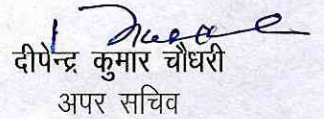 दीपेन्द्र कुमार चौधरी
अपर सचिव